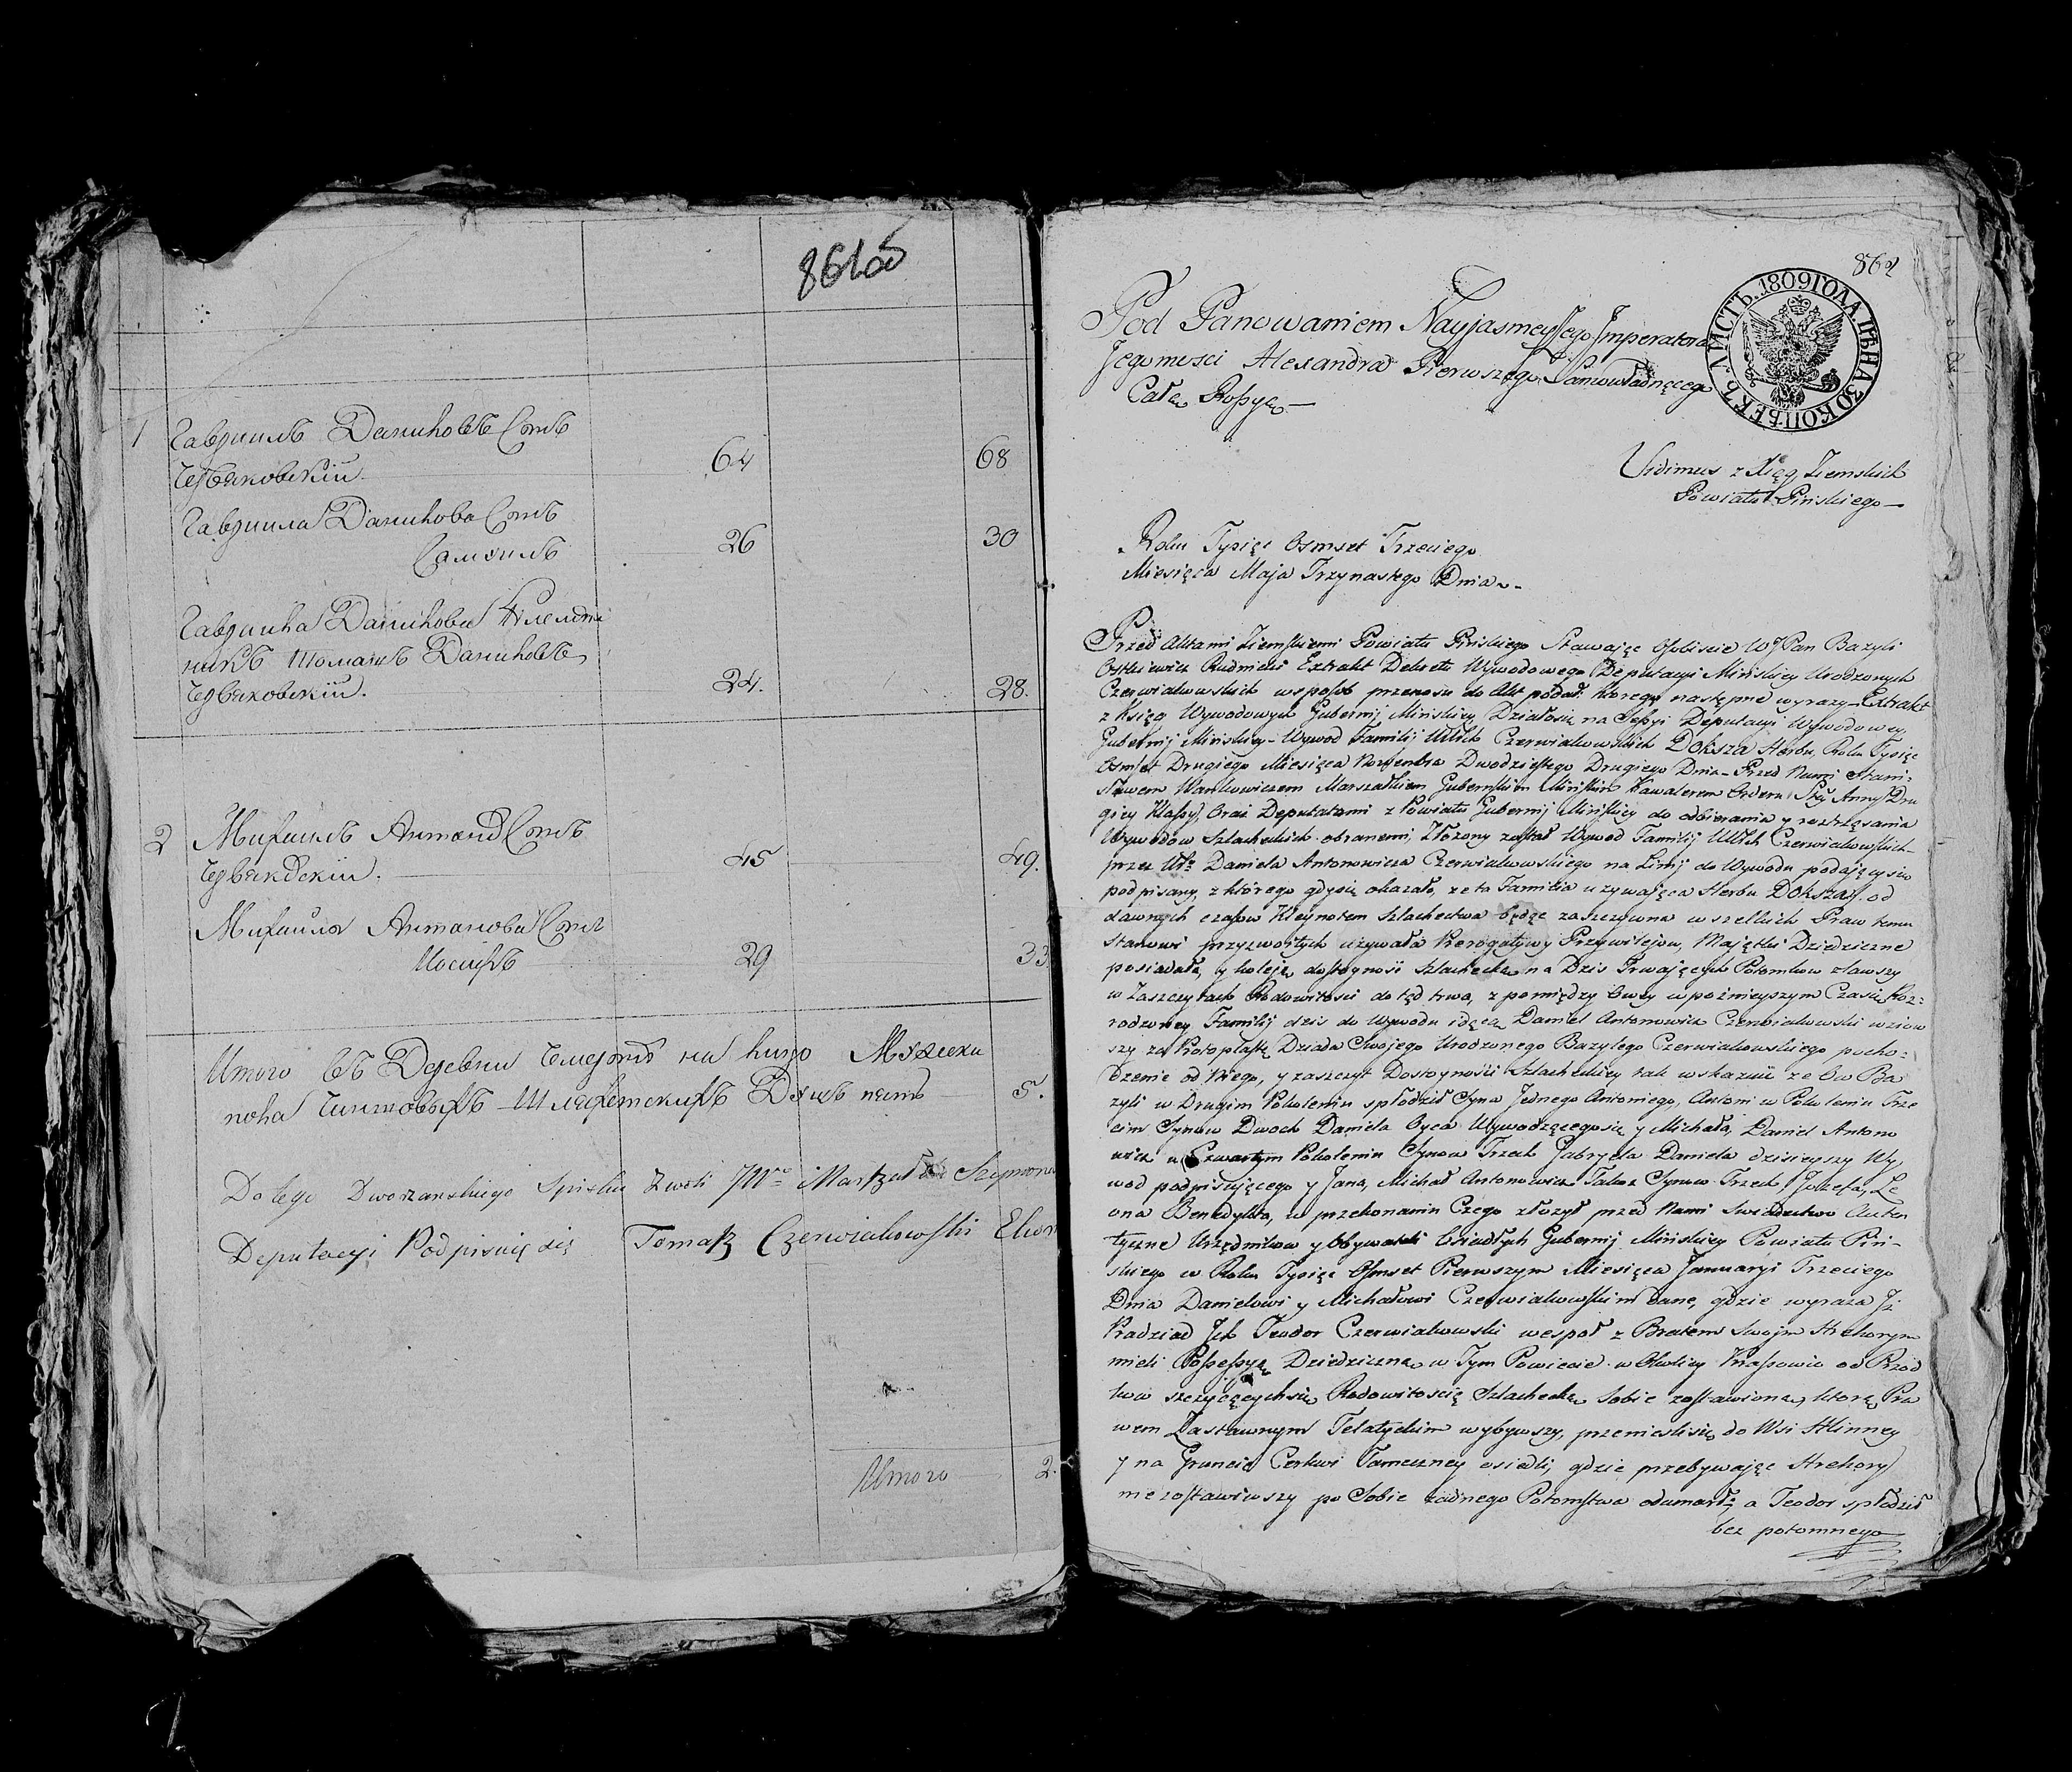 861об
1 Гавриилъ Даниловъ Сынъ
Червяковскiй 64 68
Гавриила Данилова Сынъ
Самуилъ 26 30
Гавриила Данилова Племян
никъ Томашъ Даниловъ
Червяковскiй. 24. 28.
2 Михаилъ Антоновъ Сынъ
Червяковскiй. 45 49.
Михаила Антонова Сынъ
Иосифъ 29 33
Итого въ Деревни на лицо Мужеска
пола Чиншовыхъ Шляхетскихъ Душъ пять 5.
Do tego Dworzanskiego Spisku z woli JWo Marszałka Szymona
Deputacyi Podpisuię się Tomasz Czerwiakowski
Итого 2.
862
ЛИСТЪ. 1809 ГОДА ЦѢНА 30 КОПѢЕКЪ
Pod Panowaniem Nayjasnieyszego Imperatora
Jegomosci Alexandra Pierwszego Samowładnęcego
Całą Rossyą
Vidimus z Xiąg Ziemskich
Powiatu Pińskiego
Roku Tysiąc Osmset Trzeciego
Miesięca Maja Trzynastego Dnia
Przed Aktami Ziemskiemi Powiatu Pińskiego Stawaięc Osobiscie WJPan Bazyli
Ostkiewicz Rudnicki Extrakt Dekretu Wywodowego Deputacyi Mińskiey Urodzonych
Czerwiakowskich wsposob przenosu do Akt podał. Którego następne wyrazy Extrakt
z Xięg Wywodowych Gubernij Mińskiey Działosię na Sessyi Deputacyi Wywodowey
Gubernij Mińskiey Wywod Familij Czerwiakowskich Doksza Herbu, Roku Tysięc
Osmset Drugiego Miesięca Nowembra Dwudziestego Drugiego Dnia Przed Nami Stani:
sławem Wankowiczem Marszałkiem Gubernskim Mińskim Kawalerem Orderu Stey Anny Dru
giey Klassy Oraz Deputatami z Powiatu Gubernij Mińskiey do odbierania y roztrzęsania
Wywodow Szlacheckich obranemi, Złożony został Wywod Familij Czerwiakowskich
przez Daniela Antonowicza Czerwiakowskiego na Linij do Wywodu podaięcysię
podpisany, z którego gdysię okazało, ze ta Familia uzywaięca Herbu Doksza, od
dawnych czasow Kleynotem Szlachectwa będęc zaszczycona wszelkich Praw temu
stanowi przyzwoitych uzywała Prerogatyw y Przywilejow, Maiętki Dziedziczne
posiadała, y koleję dostoynosci Szlacheckę na Dzis Trwaięcych Potomkow zlawszy
w Zaszczytach Rodowitosci do tęd trwa, z pomiędzy Owey w poznieyszym Czasie Roz:
rodzoney Familij dzis do Wywodu idęcę Daniel Antonowicz Czerwiakowski wziow
szy za Protoplastę Dziada Swojego Urodzonego Bazylego Czerwiakowskiego pocho:
dzenie od Niego, y zaszczyt Dostoynosci Szlacheckiey tak wskazuie ze Ow Ba
zyli w Drugim Pokoleniu spłodził Syna Jednego Antoniego, Antoni w Pokoleniu Trze
cim Synow Dwoch Daniela Oyca Wywodzęcegosię y Michała, Daniel Antono
wicz w Czwartym Pokoleniu Synow Trzech Gabryela Daniela dzisieyszy Wy
wod podpisuięcego y Jana, Michał Antonowicz Takoz Synow Trzech Jozefa, Le
ona Benedykta, w przekonaniu Czego złożył przed Nami Swiadectwo Auten
tyczne Urzędnikow y Obywateli Osiadłych Gubernij Mińskiey Powiatu Piń-
skiego w Roku Tysięc Osmset Pierwszym Miesięca Januaryi Trzeciego
Dnia Danielowi y Michałowi Czerwiakowskim dane, gdzie wyraza Iż
Pradziad Ich Teodor Czerwiakowski wespoł z Bratem Swojm Hrehorym
mieli Possessyą Dziedziczną w Tym Powiecie w Okolicy od Przod
kow szczycęcychsię Rodowitoscię Szlachecką Sobie zostawioną, którą Pra
wem Zastawnym Telatyckim wybywszy, przeniesli się do Wsi Hlinney
y na Gruncie Cerkwi Tameczney osiedli, gdzie przebywaięc Hrehory
niezostawiwszy po Sobie zadnego Potomstwa odumarł, a Teodor spłodził
bez potomnego